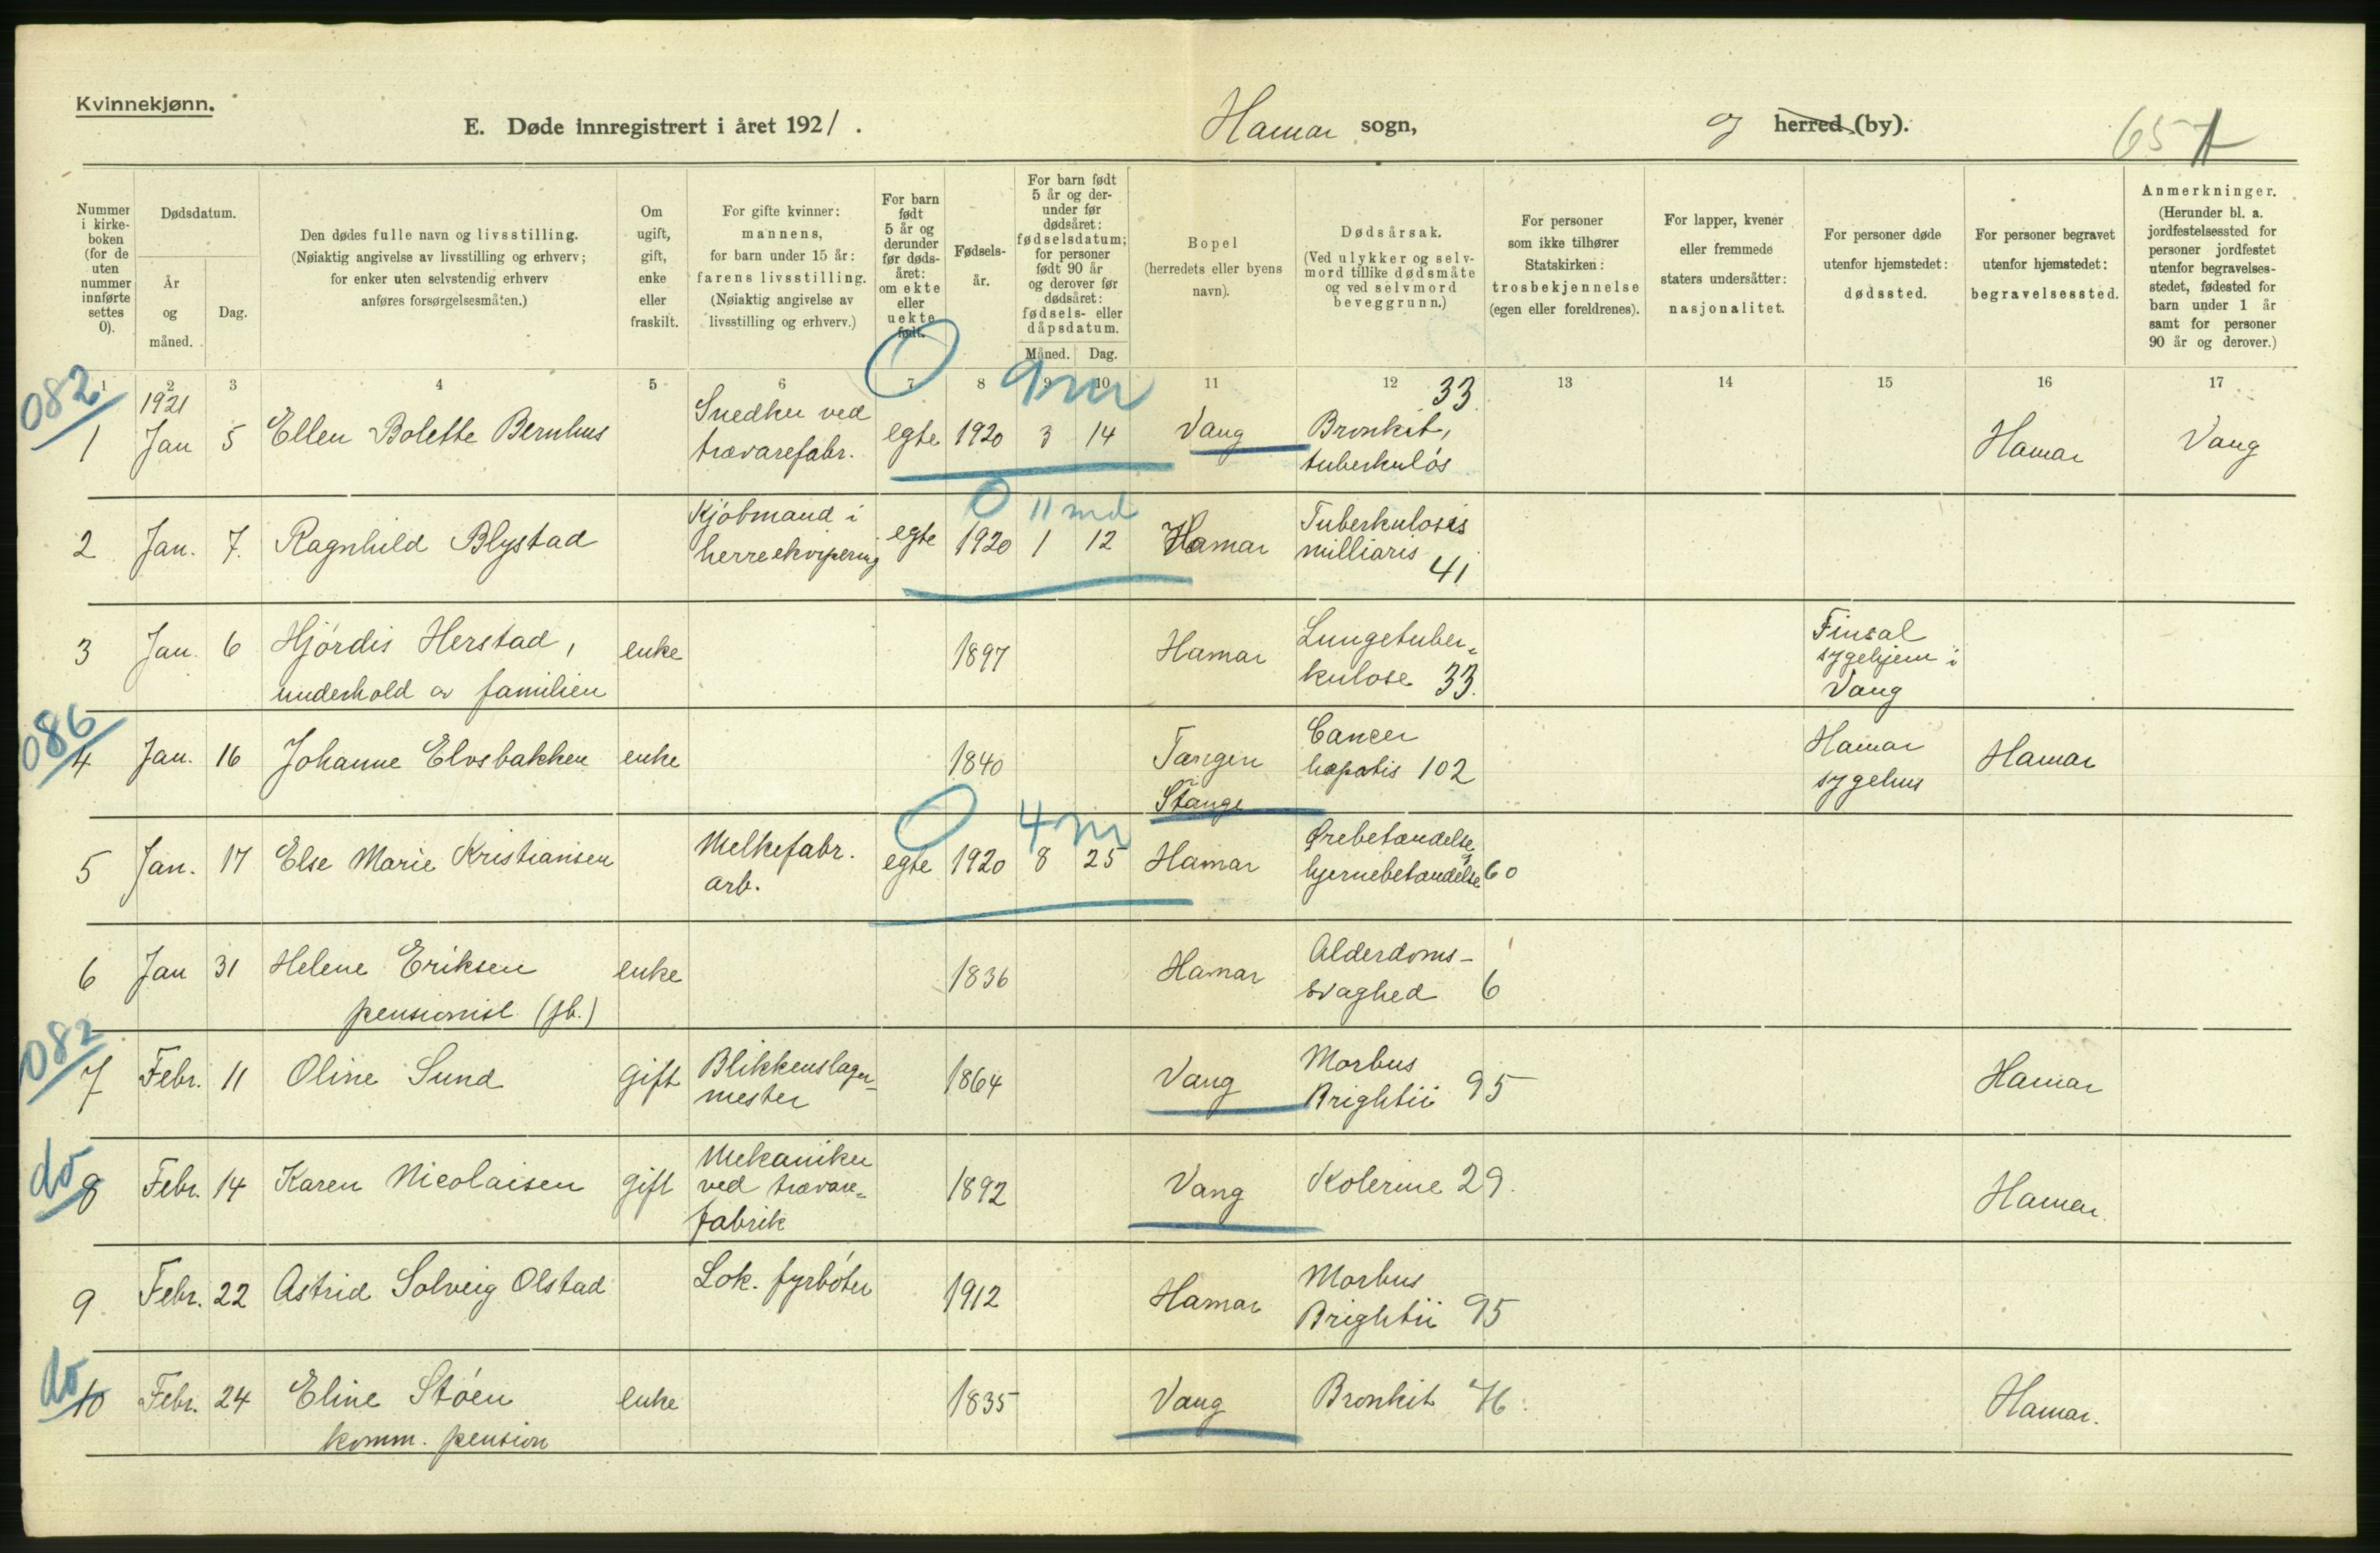 Kvinnekjønn.
E. Døde innregistrert i året 1921.
Hamar sogn,
og herred (by).
65
Nummer i kirke-boken (for de uten nummer innførte settes 0).
Dødsdatum.
År og måned.
Dag.
Den dødes fulle navn og livsstilling.
(Nøiaktig angivelse av livsstilling og erhverv;
for enker uten selvstendig erhverv
anføres forsørgelsesmåten.)
Om ugift, gift, enke eller fraskilt.
For gifte kvinner:
mannens,
for barn under 15 år:
farens livsstilling.
(Nøiaktig angivelse av
livsstilling og erhverv.)
For barn født 5 år og derunder før døds-året: om ekte eller uekte født.
Fødsels-år.
For barn født 5 år og der-under før dødsåret: fødselsdatum; for personer født 90 år og derover før dødsåret: fødsels- eller dåpsdatum.
Måned. Dag.
Bopel
(herredets eller byens navn).
Dødsårsak.
(Ved ulykker og selv-mord tillike dødsmåte og ved selvmord beveggrunn.)
For personer som ikke tilhører Statskirken: trosbekjennelse (egen eller foreldrenes).
For lapper, kvener eller fremmede staters undersåtter: nasjonalitet.
For personer døde utenfor hjemstedet: dødssted.
For personer begravet utenfor hjemstedet: begravelsessted.
Anmerkninger.
(Herunder bl. a. jordfestelsessted for personer jordfestet utenfor begravelses-stedet, fødested for barn under 1 år samt for personer 90 år og derover.)
1 2 3 4 5 6 7 8 9 10 11 12 13 14 15 16 17
082 0 9 m
1 1921 Jan 5 Ellen Bolette Bernhus Snedker ved trævarefabr. egte 1920 3 14 Vang Bronkit, tuberkuløs 33 Hamar Vang
0 11 md
2 Jan. 7. Ragnhild Blystad Kjøbmand i herreekvipering egte 1920 1 12 Hamar Tuberkulosis milliaris 41
3 Jan. 6 Hjørdis Herstad, underhold av familien enke 1897 Hamar Lungetuber-kulose 33. Finsal sygehjem i Vang
086
4 Jan. 16 Johanne Elvsbakken enke 1840 Tangen Stange Cancer hepatis 102 Hamar sygehus Hamar
0 4 m
5 Jan. 17 Else Marie Kristiansen Melkefabr. arb. egte 1920 8 25 Hamar Ørebetændelse, hjernebetændelse 60
6 Jan 31 Helene Eriksen pensionist enke 1836 Hamar Alderdoms-svaghed 6
082
7 Febr. 11 Oline Sund gift Blikkenslager-mester 1864 Vang Morbus Brightii 95 Hamar
do
8 Febr. 14 Karen Nicolaisen gift Mekaniker ved trævare-fabrik 1892 Vang Kolerine 29. Hamar.
9 Febr. 22 Astrid Solveig Olstad Lok. fyrbøter 1912 Hamar Morbus Brightii 95
do
10 Febr. 24 Eline Støen komm. pension enke 1835 Vang Bronkit Hamar.